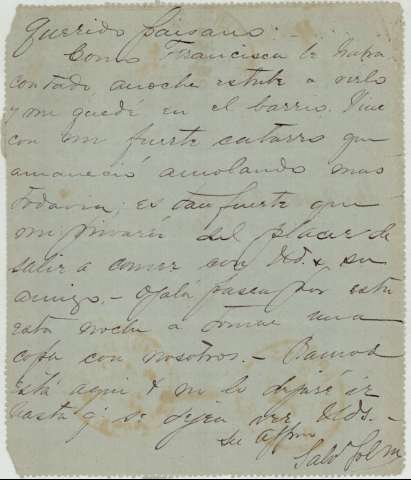 Querido paisano:
Como Francisca le habrá
contado anoche estube a verlo
y me quedé en el barrio. Vine
con un fuerte catarro que
amaneció amolando mas
todavia; es tan fuerte que
me privaré del placer de
salir a comer con Ud. & su
amigo.- Ojalá pasen por esta
esta noche a tomar una
copa con nosotros.- Ramon
está aqui & no lo dejaré ir
hasta q' se dejen ver Uds.-
Su affmo
Salvr